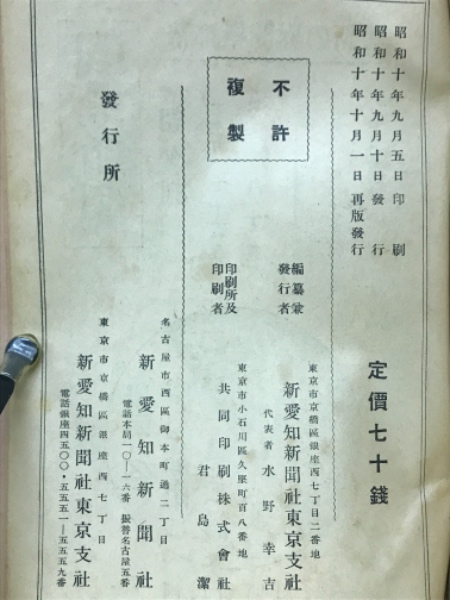 昭和十年九月五日印刷
昭和十年九月十日發行
昭和十年十月一日再版發行
定價七十錢
不許
複製
編纂兼
發行者
東京市京橋區銀座西七丁目二番地
新愛知新聞社東京支社
代表者 水野幸吉
印刷所及
印刷者
東京市小石川區久堅町百八番地
共同印刷株式會社
君島潔
發行所
名古屋市西區御本町通二丁目
新愛知新聞社
電話本局一〇—一六番 振替名古屋五番
東京市京橋區銀座西七丁目
新愛知新聞社東京支社
電話銀座四五〇〇・五五五一—五五五九番